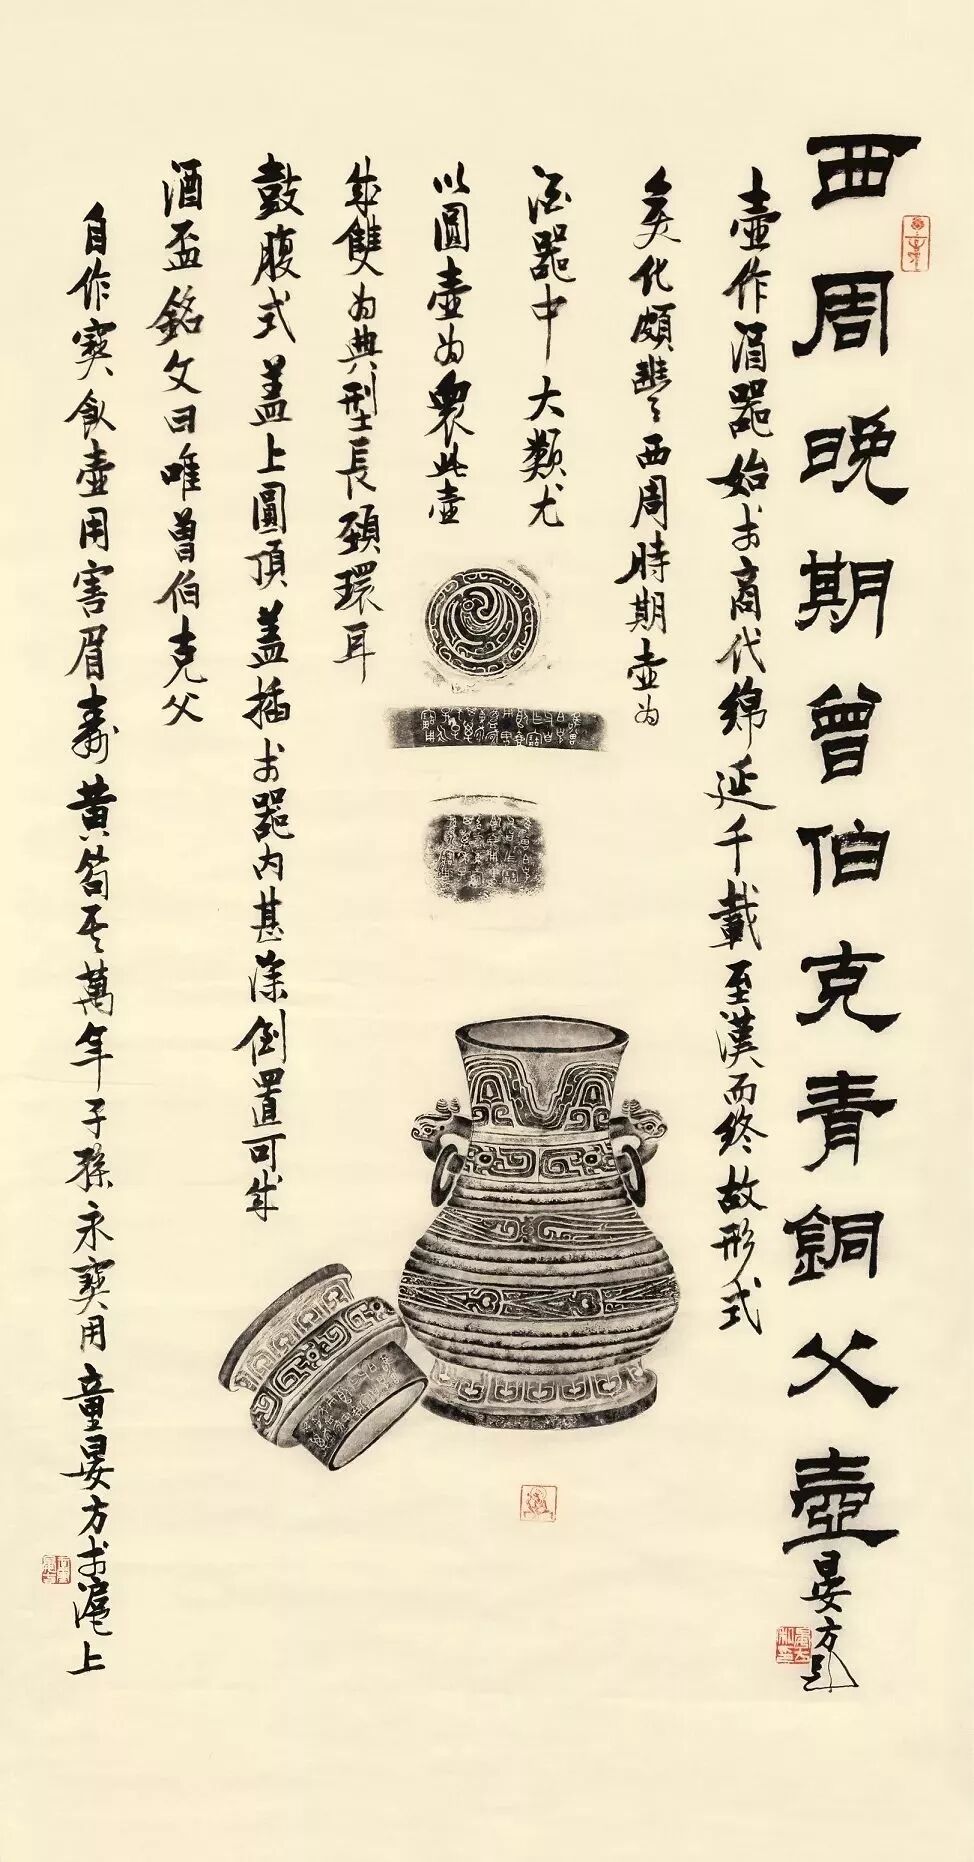 西周晚期曾伯克青銅父壺
晏方題
壺作酒器始於商代綿延千載至漢而終故形式
變化頗豐西周時期壺為
酒器中大類尤
以圓壺為眾此壺
成雙為典型長頸環耳
鼓腹式蓋上圓頂蓋插於器內甚深倒置可成
酒盃銘文曰唯曾伯克父
自作寶飲壺用害眉壽黃耇其萬年子孫永寶用 童晏方於滬上